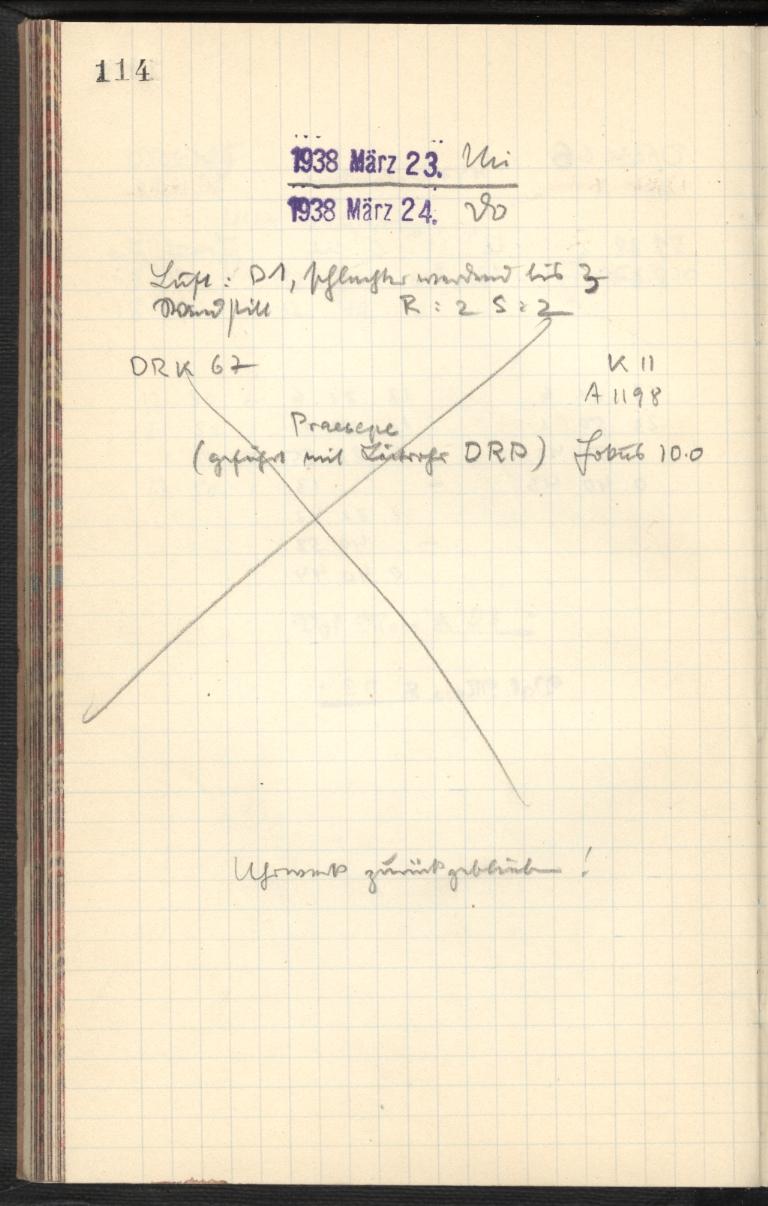 114
1938 März 23. Mi
1938 März 24. Do
Luft: D1, schlechter werdend bis 3
Windstill R: 2 S: 2
DRK 67 K 11
A 1198
Praesepe
(geführt mit Leitrohr DRP) Fokus 10.0
Uhrwerk zurückgeblieben!